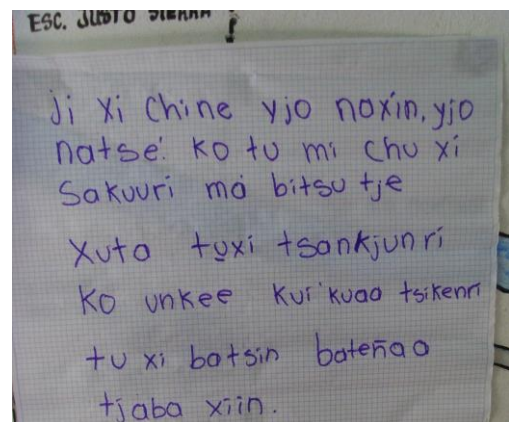 ESC. JUSTO SIERRA
Ji xi chine yjo noxín, yjo
natse'. ko tu mi chu xi
Sakuuri má bitsu tje
Xuta tu̱xi tsankjunrí
ko unkee kui'kuaa tsikenrí
tu xi batsin bateñao
tjaba xiin.